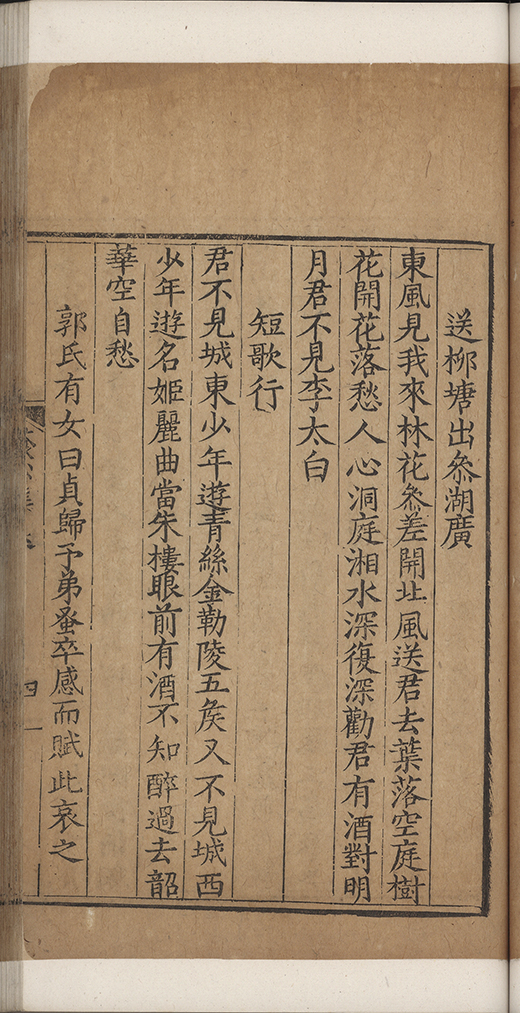 送桞塘出叅湖廣
東風見我來林花叅差開北風送君去葉落空庭樹
花開花落愁人心洞庭湘水深復深勸君有酒對明
月君不見李太白
短歌行
君不見城東少年遊青絲金勒陵五矦又不見城西
少年遊名姬麗曲當朱樓眼前有酒不知醉過去韶
華空自愁
郭氏有女曰貞歸予弟蚤卒感而賦此哀之
四